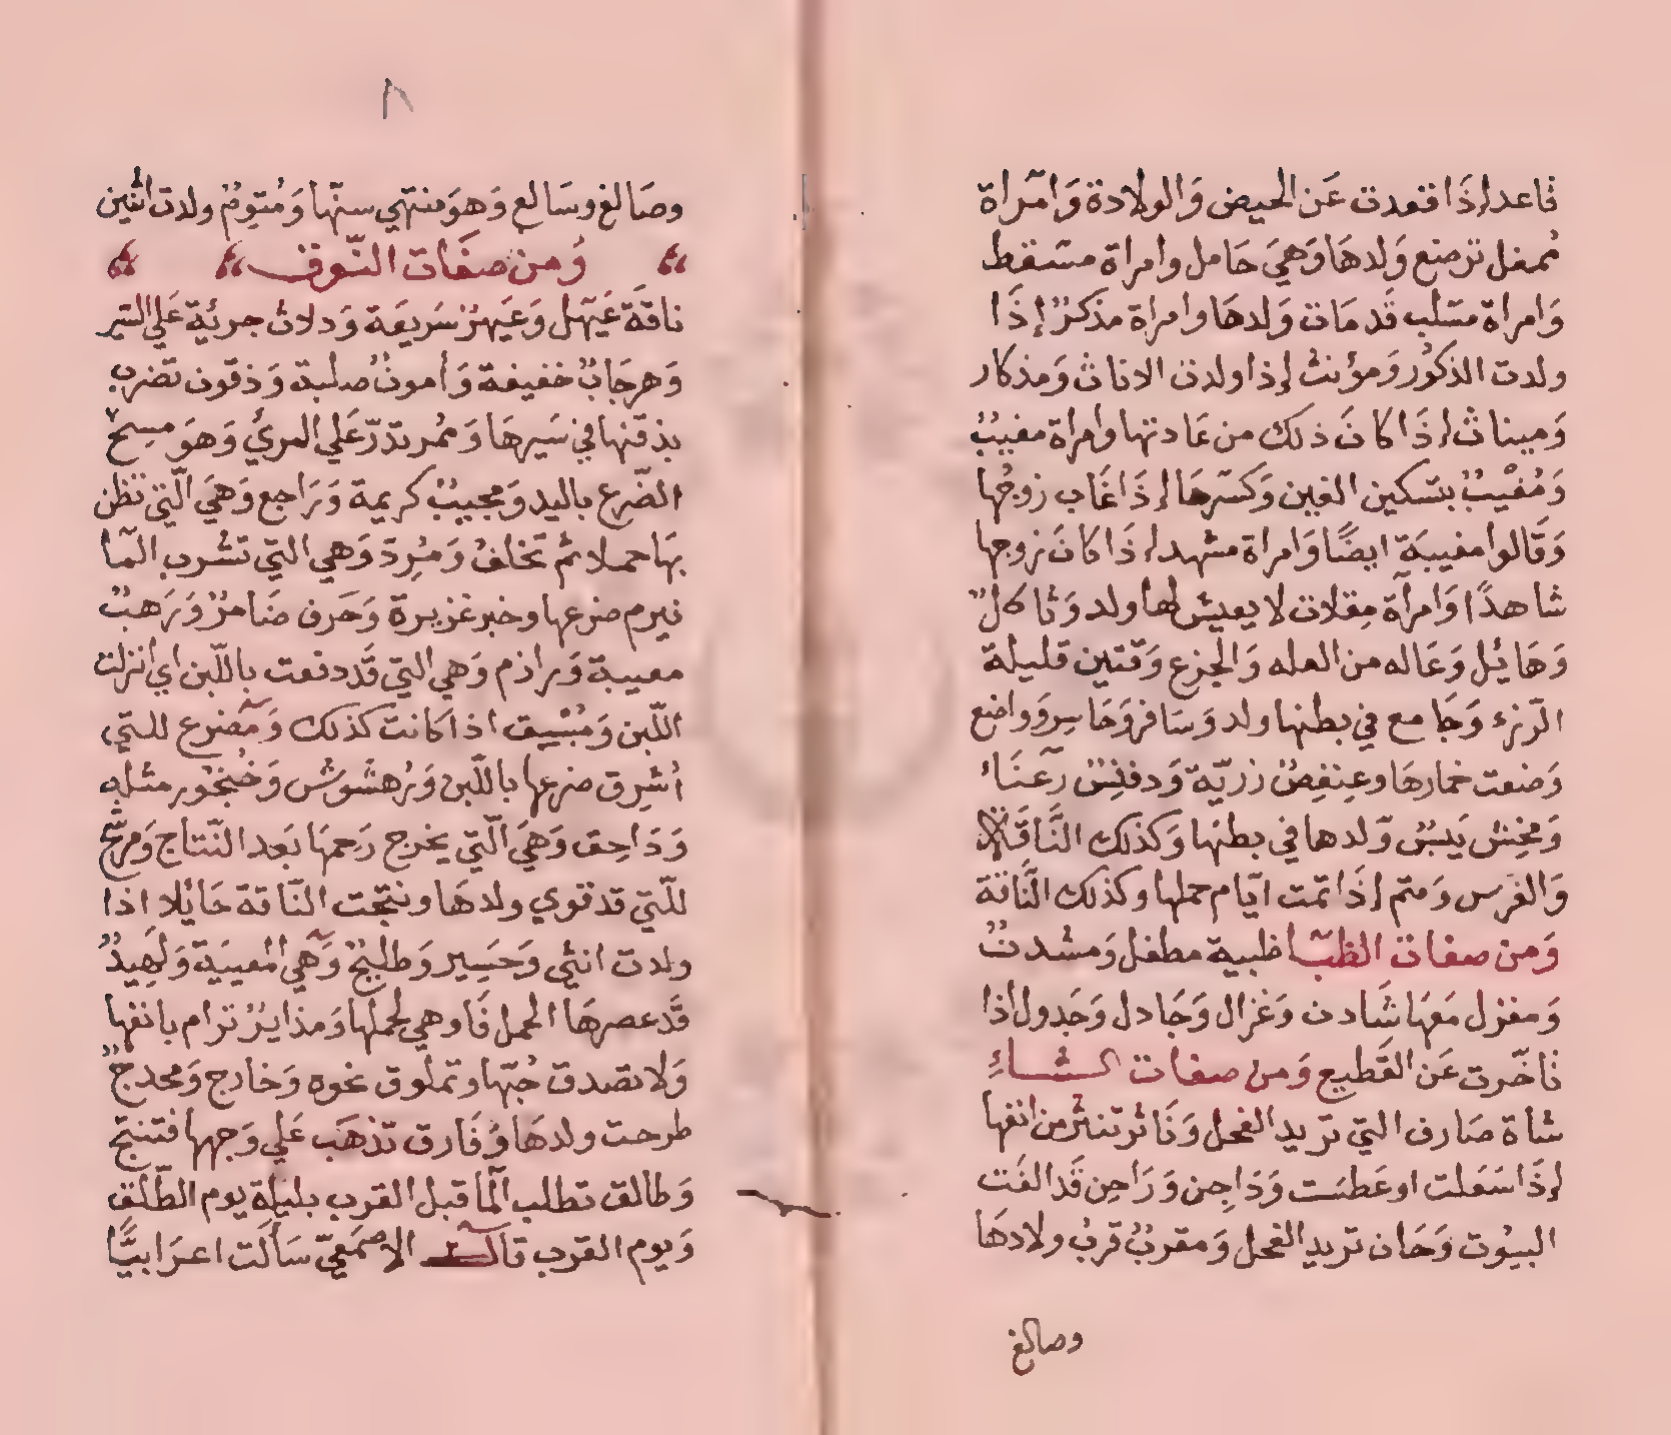 قاعد إذَا قعدت عَن الحيض وَالولادة وَامرَاة
ممغل ترضع وَلدهَا وَهيَ حَامل وامراة مسَقط
وَامراة مسَلب قَد مَات وَلدهَا وامراة مذكرٌ إذَا
ولدت الذكوُر وَمؤنثٌ إذا ولدت الاناث وَمذكار
وَميناث إذَا كانَ ذلك من عَادتها وامراة مغيبٌ
وَمُغْيِبٌ بتسكين الغين وَكسَرهَا إذَا غَاب زوجُها
وَقَالوا مغيبَة ايضًا وَامراة مشهد إذَا كانَ زوجها
شاهدًا وَامرآة مِقلات لا يعيش لها ولد وَثاكلٌ
وَهَايُل وَعَاله من العله وَالجزع وَقتين قليلة
الرّزء وَجَامع في بطنها ولد وَسَافر وَحَاسِر وَواضع
وَضعت خمارهَا وعِنفِصٌ زريّة وَدفنِسٌ رَعنَاء
وَمخِش يَبسَ وَلدها في بطنهَا وَكذلك النَّاقَة
وَالفَرس وَمتم إذَا تمت ايّام حملها وكذلك النَّاقة
وَمن صفات الظبَا ظبية مطفل وَمشدنٌ
وَمغزل مَعَهَا شَادن وَغزال وَجَادل وَجَدول اذا
تاخّرت عَن القَطيع وَمن صفات الشاءِ
شاة صَارف التي تريد الفحل وَنَاثر تنثر من انفها
إذَا سَعَلت او عَطسَت وَدَاجِن وَرَاجِن قَد الفَت
البيُوت وَحَان تريد الفحل وَمقربٌ قربُ ولادهَا
وصالغ
٨
وصَالغ وسَالغ وَهوَ منتهي سنّها وَمُتوِمٌ ولدت اثنين
وَمن صفَات النّوق
ناقَة عَيْهَل وَعَيهَمٌ سَريعَة وَدلاث جريئَة عَلي السّير
وَهرجَابٌ خفيفة وَأمونٌ صلبة وَذقون تضرب
بذقنها في سَيرهَا وَممر تدرّ عَلي المريُ وَهوَ مسِحٌ
الضّرع باليد وَمجيبٌ كريمة وَرَاجع وَهيَ الّتي تظن
بهَا حملا ثم تخلفُ وَمُرِدّ وَهي التي تشرب المآ
فيرم ضرعها وخبر غزيرة وَحَرف ضَامرٌ وَرَهبٌ
معيبة وَرازم وَهي التي قَد دفعت باللّبن اي انزلت
اللّبن وَمُبْسِق اذا كانت كذلك وَمُضرع للتي
اُشرِق ضرعها باللّبن وَرُهشُوش وَخُنجُور مثله
وَدَاحِق وَهيَ الّتي يخرج رَحمهَا بَعد النّتاج وَمرشّح
للّتي قد قوي ولدهَا ونتجت النّاقة حَايُلا اذا
ولدت انثي وَحَسِير وَطليحٌ وَهي المعييَة وَلَهِيدٌ
قَد عصرهَا الحمل فَاوهي لحمها وَمذايرٌ ترام بانفها
وَلا تصدق حُبّها وتملوق نحوه وَخادج وَمخدجٌ
طرحت ولدهَا وَفَارق تذهَب عَلي وَجهها فتنتج
وَطالق تطلب المآ قبل القرب بليلة يوم الطّلَق
وَيوم القرب قالَ الاصمَعيّ سَالَت اعرَابيًّا